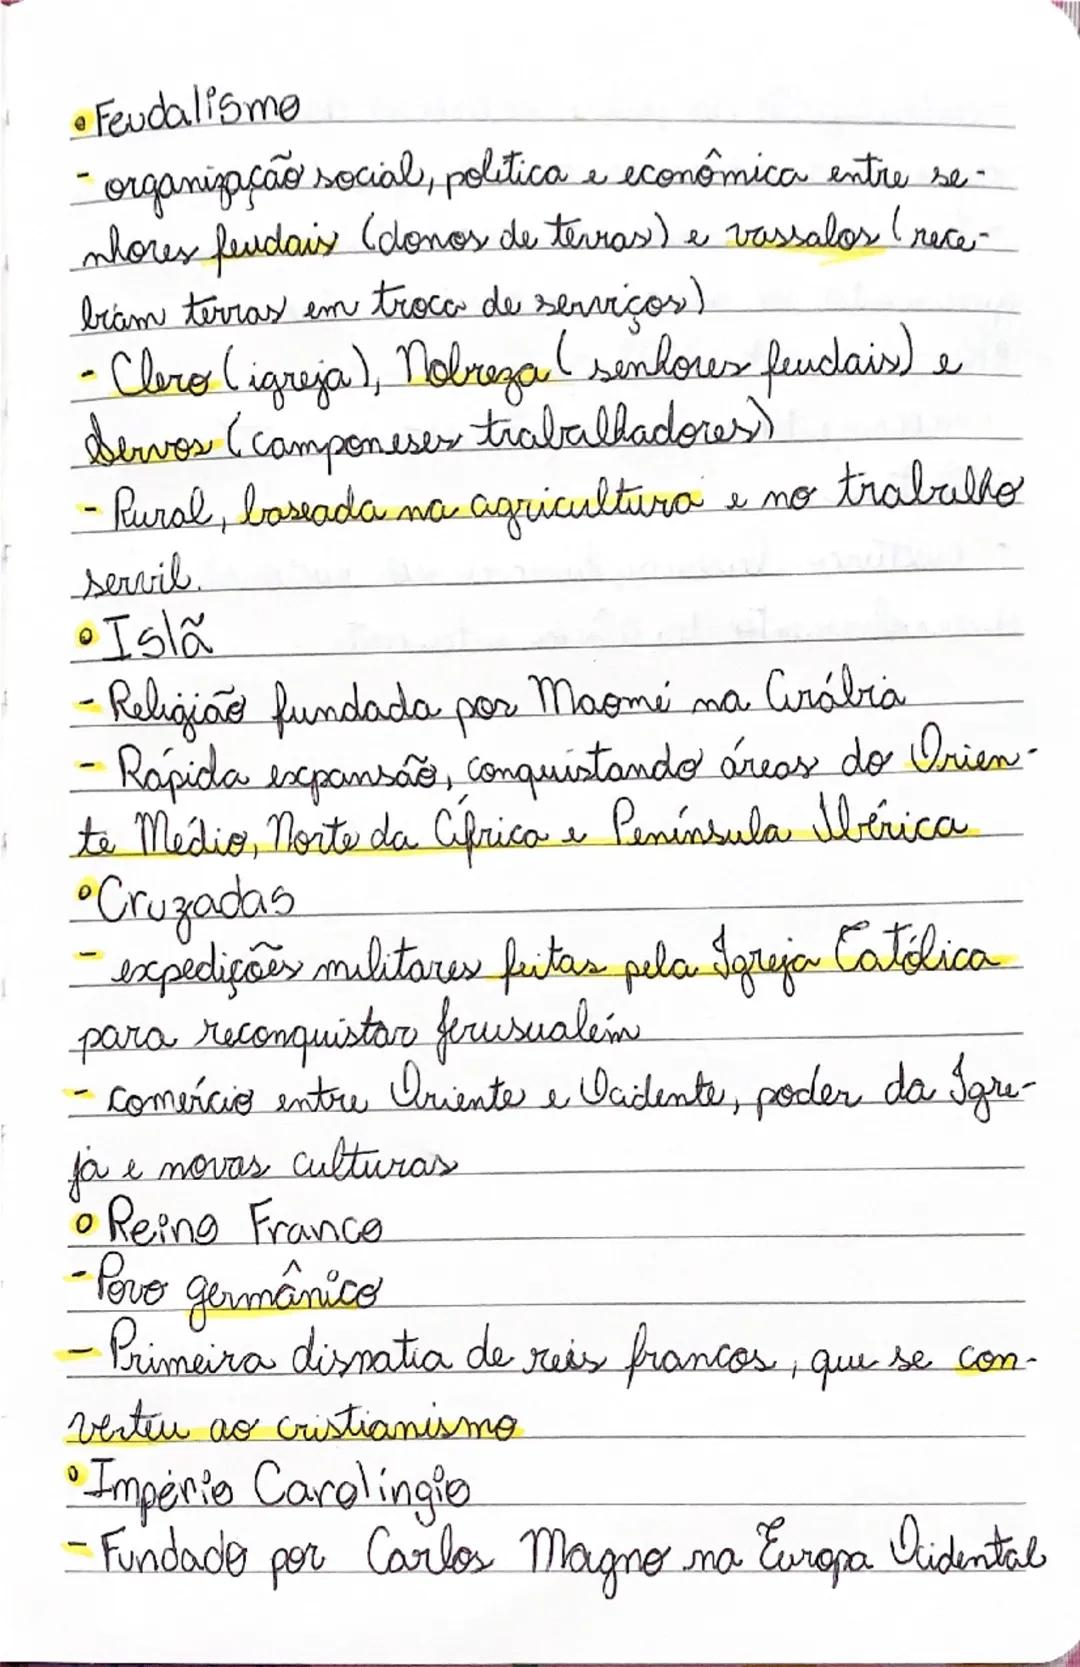 • Feudalismo
- organização social, política e econômica entre se-
nhores feudais (donos de terras) e vassalos (rece-
biam terras em troca de serviços)
- Clero (igreja), Nobreza (senhores feudais) e
Servos (camponeses trabalhadores)
- Rural, baseada na agricultura e no trabalho
servil.
• Islã
- Religião fundada por Maomé na Arábia
- Rápida expansão, conquistando áreas do Orien-
te Médio, Norte da África e Península Ibérica
• Cruzadas
- expedições militares feitas pela Igreja Católica
para reconquistar Jerusualém
- comércio entre Oriente e Ocidente, poder da Igre-
ja e novas culturas
• Reino Franco
- Povo germânico
- Primeira disnatia de reis francos, que se con-
verteu ao cristianismo
• Império Carolíngio
- Fundado por Carlos Magno na Europa Ocidental